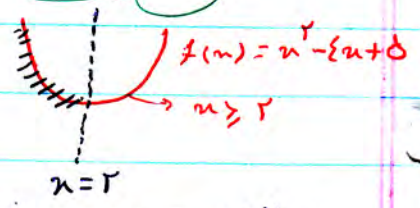 f(x) = x² - ۴x + ۵
x ≥ ۲
x = ۲